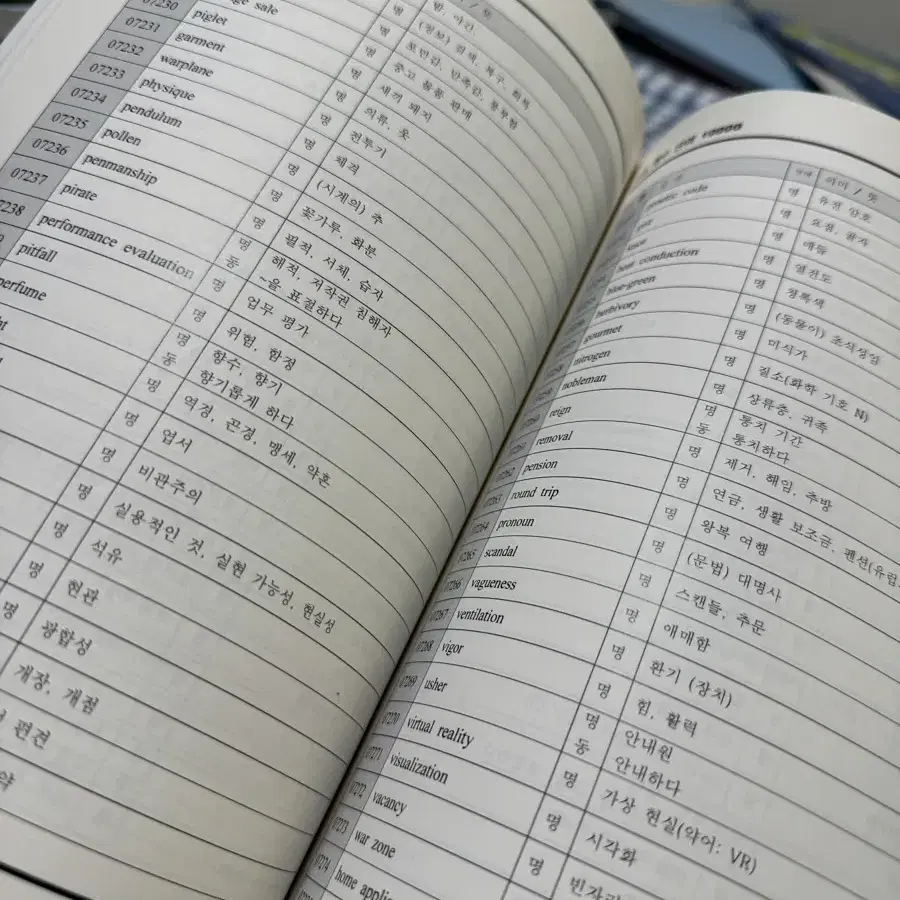 밤, 야간
(정보) 검색, 복구, 회복
명 포만감, 만족감, 풍부함
sale 명 중고 물품 판매
07230 piglet 명 새끼 돼지
07231 garment 명 의류, 옷
07232 warplane 명 전투기
07233 physique 명 체격
07234 pendulum 명 (시계의) 추
07235 pollen 명 꽃가루, 화분
07236 penmanship 명 필적, 서체, 습자
07237 pirate 명 해적, 저작권 침해자
동 ~을 표절하다
07238 performance evaluation 명 업무 평가
pitfall 명 위험, 함정
perfume 명 향수, 향기
동 향기롭게 하다
명 역경, 곤경, 맹세, 약혼
명 엽서
명 비관주의
명 실용적인 것, 실현 가능성, 현실성
명 석유
명 현관
명 광합성
명 개장, 개점
편견
약
의미 / 뜻
genetic code 명 유전 암호
명 요정, 꼬마
명 매듭
heat conduction 명 열전도
blue-green 명 청록색
herbivory 명 (동물이) 초식성임
gourmet 명 미식가
nitrogen 명 질소(화학 기호 N)
nobleman 명 상류층, 귀족
reign 명 통치 기간
동 통치하다
removal 명 제거, 해임, 추방
07262 pension 명 연금, 생활 보조금, 펜션(유럽.
07263 round trip 명 왕복 여행
07264 pronoun 명 (문법) 대명사
07265 scandal 명 스캔들, 추문
07266 vagueness 명 애매함
07267 ventilation 명 환기 (장치)
07268 vigor 명 힘, 활력
07269 usher 명 안내원
동 안내하다
07270 virtual reality 명 가상 현실(약어: VR)
07271 visualization 명 시각화
07272 vacancy 명 빈자리
07273 war zone
07274 home applian